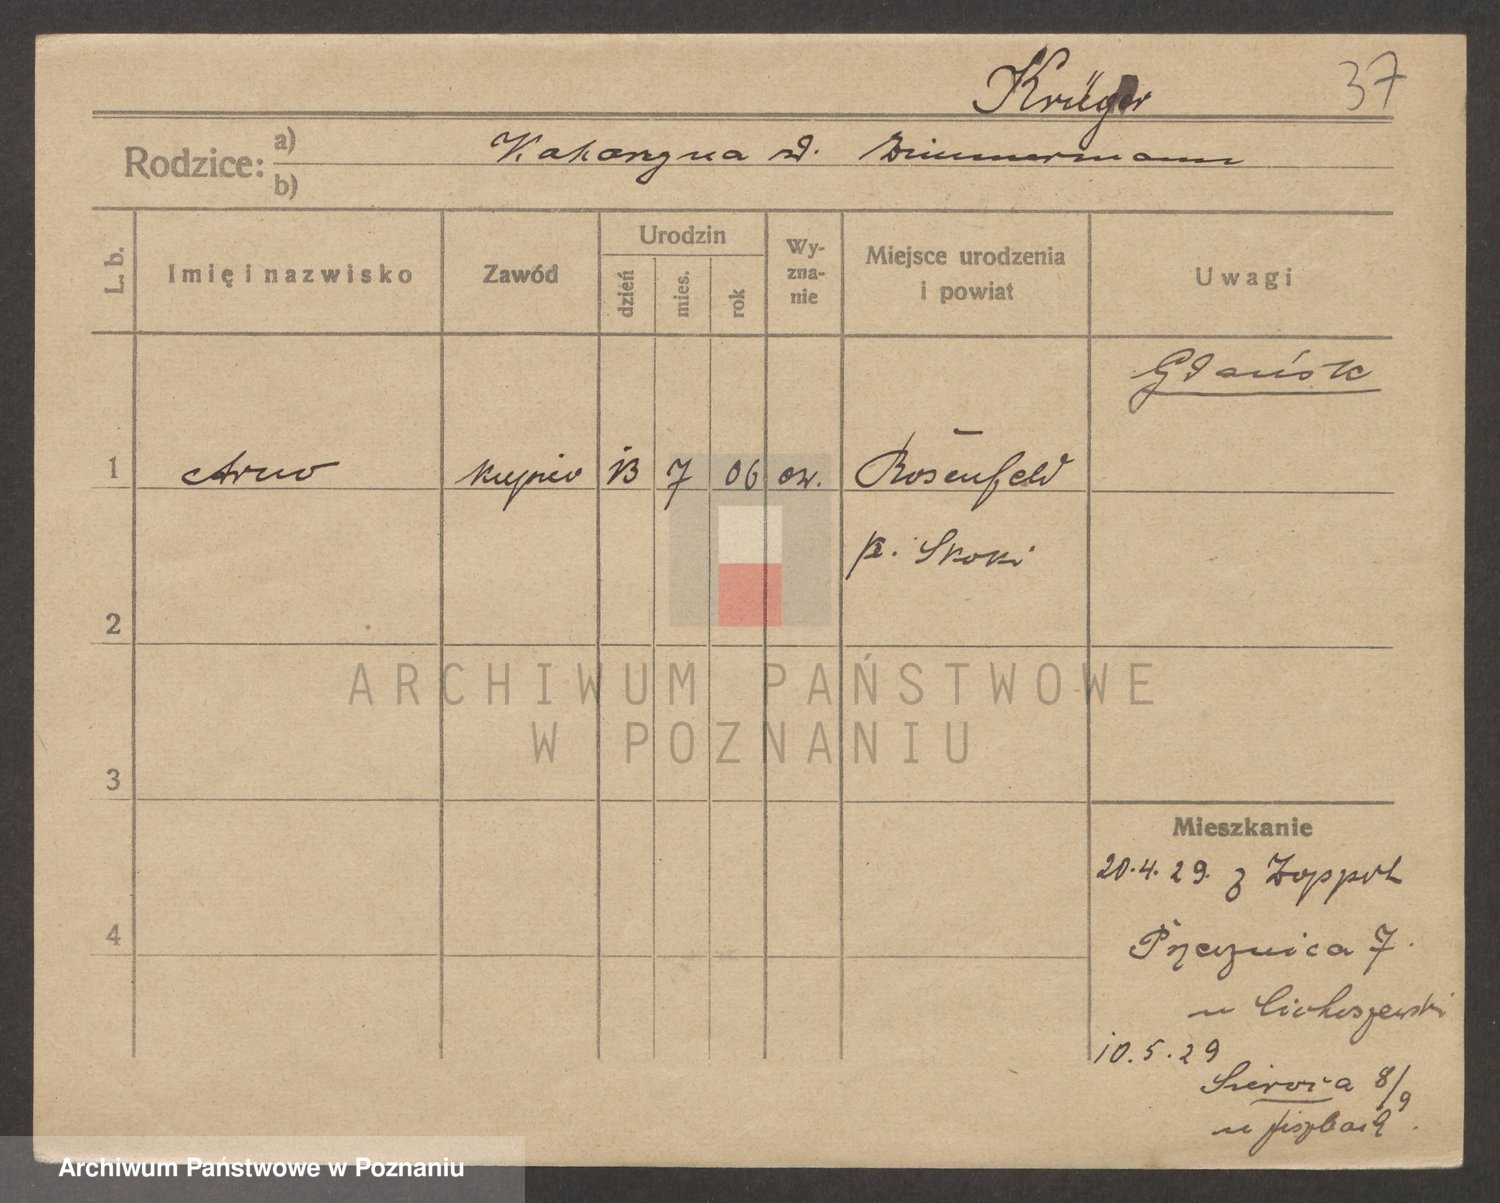 Krüger 37
Rodzice: a)
Katarzyna d. Zimmermann
b)
L. b. Imię i nazwisko Zawód Urodzin dzień mies. rok Wy-zna-nie Miejsce urodzenia i powiat Uwagi
Gdańsk
1 Arno kupiec 13 7 06 ew. Rosenfeld
p. Skoki
2
ARCHIWUM PAŃSTWOWE
W POZNANIU
3
Mieszkanie
20.4.29. z Zoppot
4
Pszczelnica 7
u Cichoszewski
10.5.29
8/9
u
Archiwum Państwowe w Poznaniu